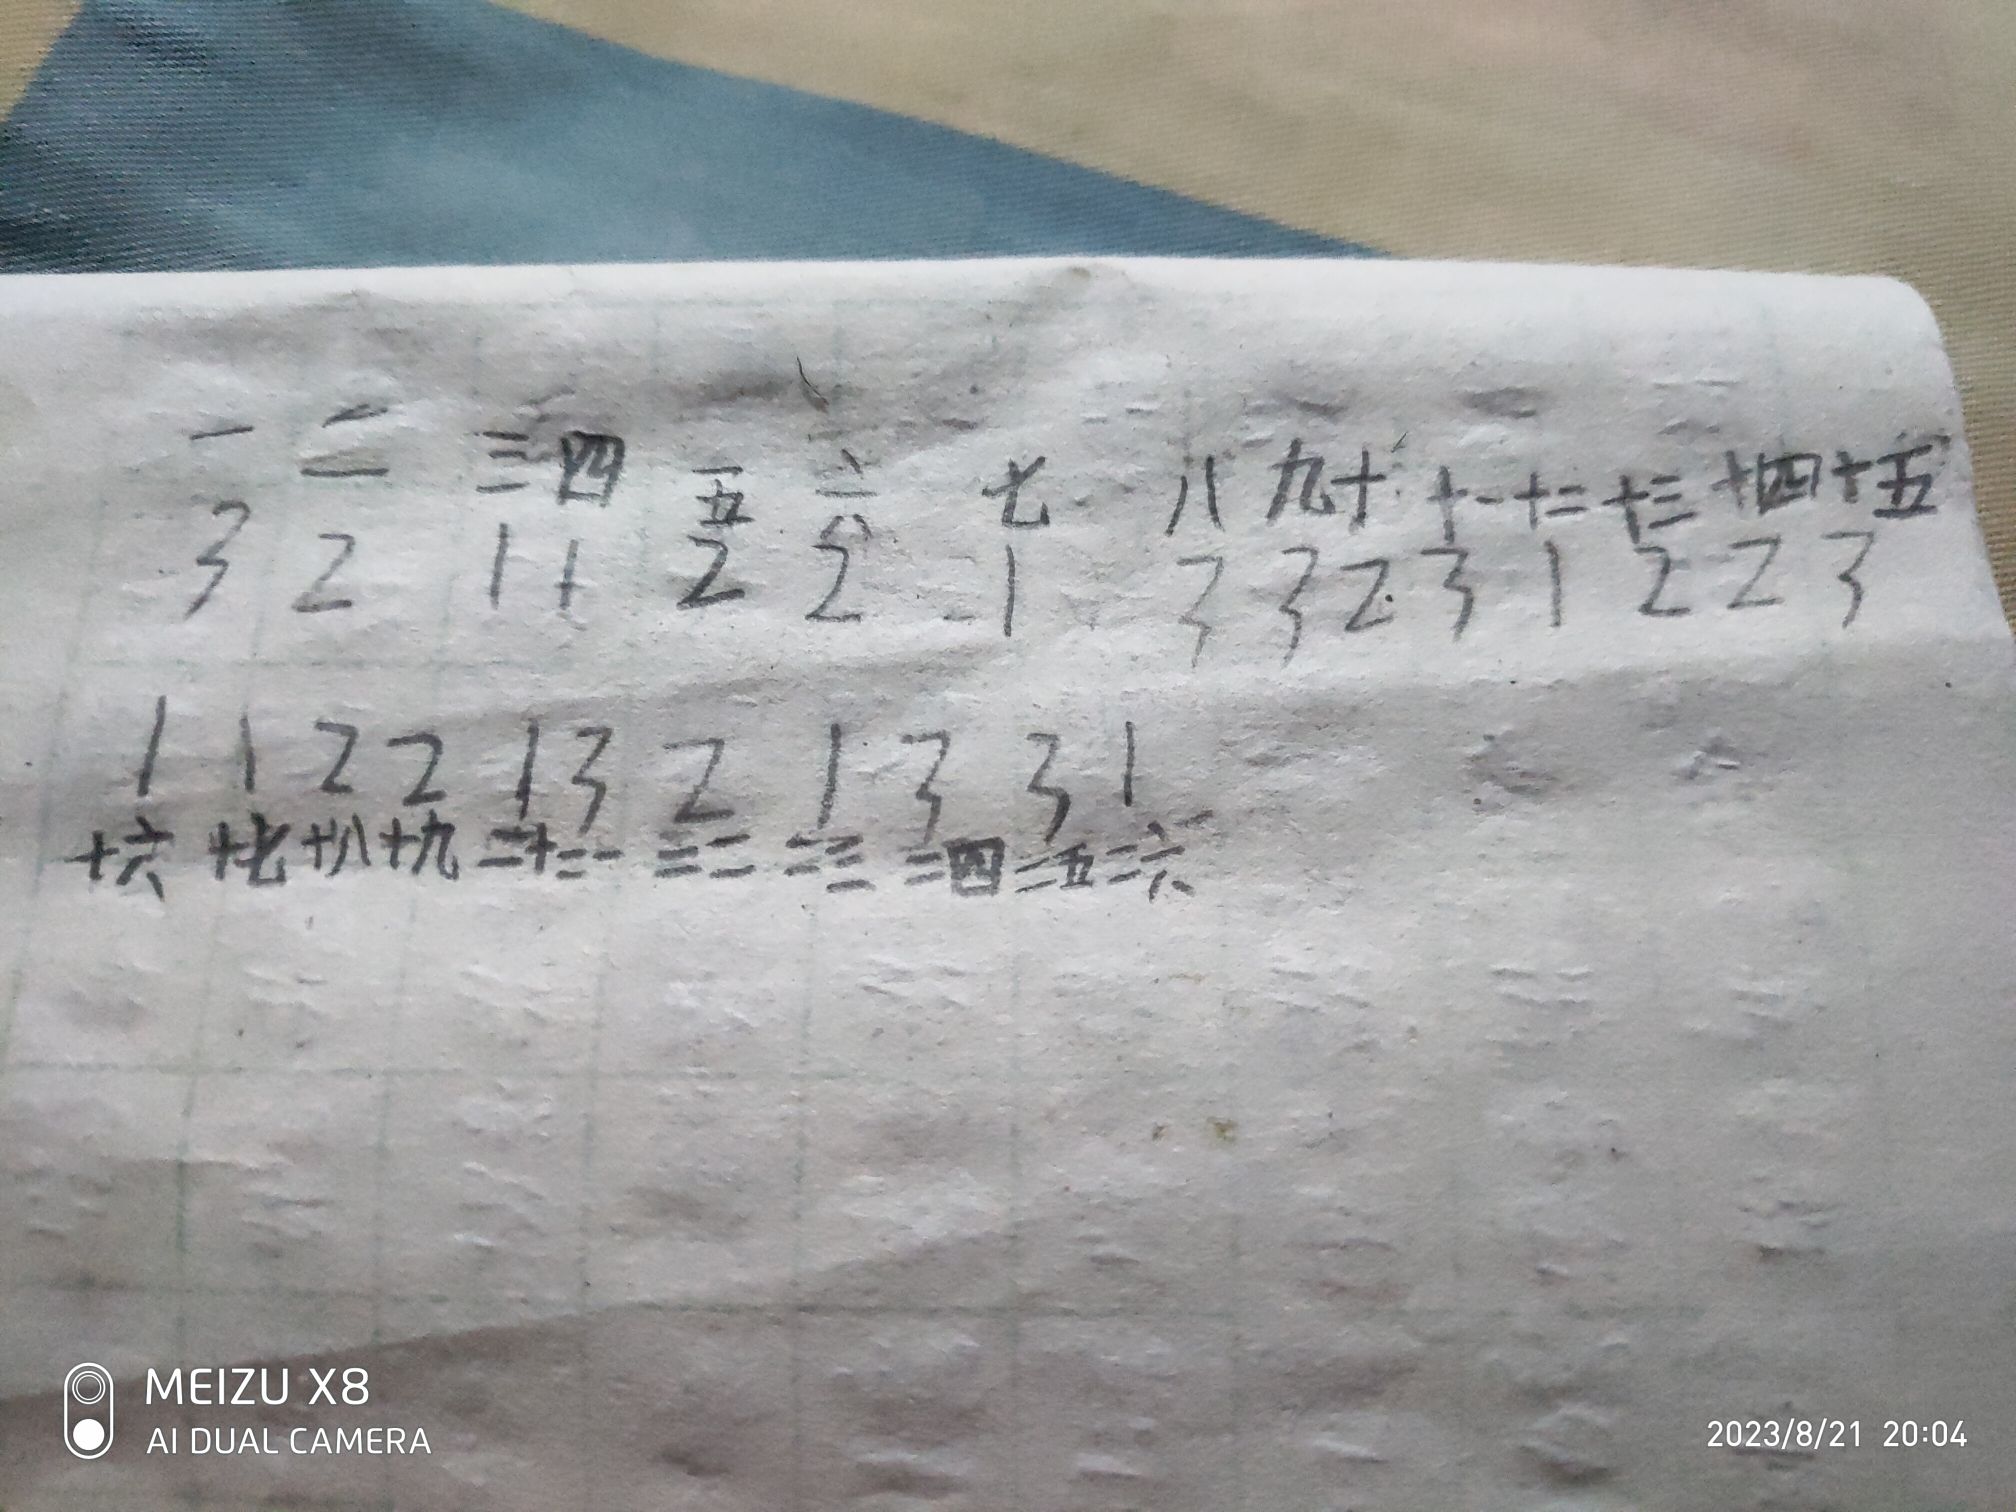 一 二 三 四 五 六 七 八 九 十 十一 十二 十三 十四 十五
3 2 1 1 2 2 1 3 3 2 3 1 2 2 3
1 1 2 2 1 3 2 1 3 3 1
十六 十七 十八 十九 二十 二一 二二 二三 二四 二五 二六
MEIZU X8
AI DUAL CAMERA
2023/8/21 20:04